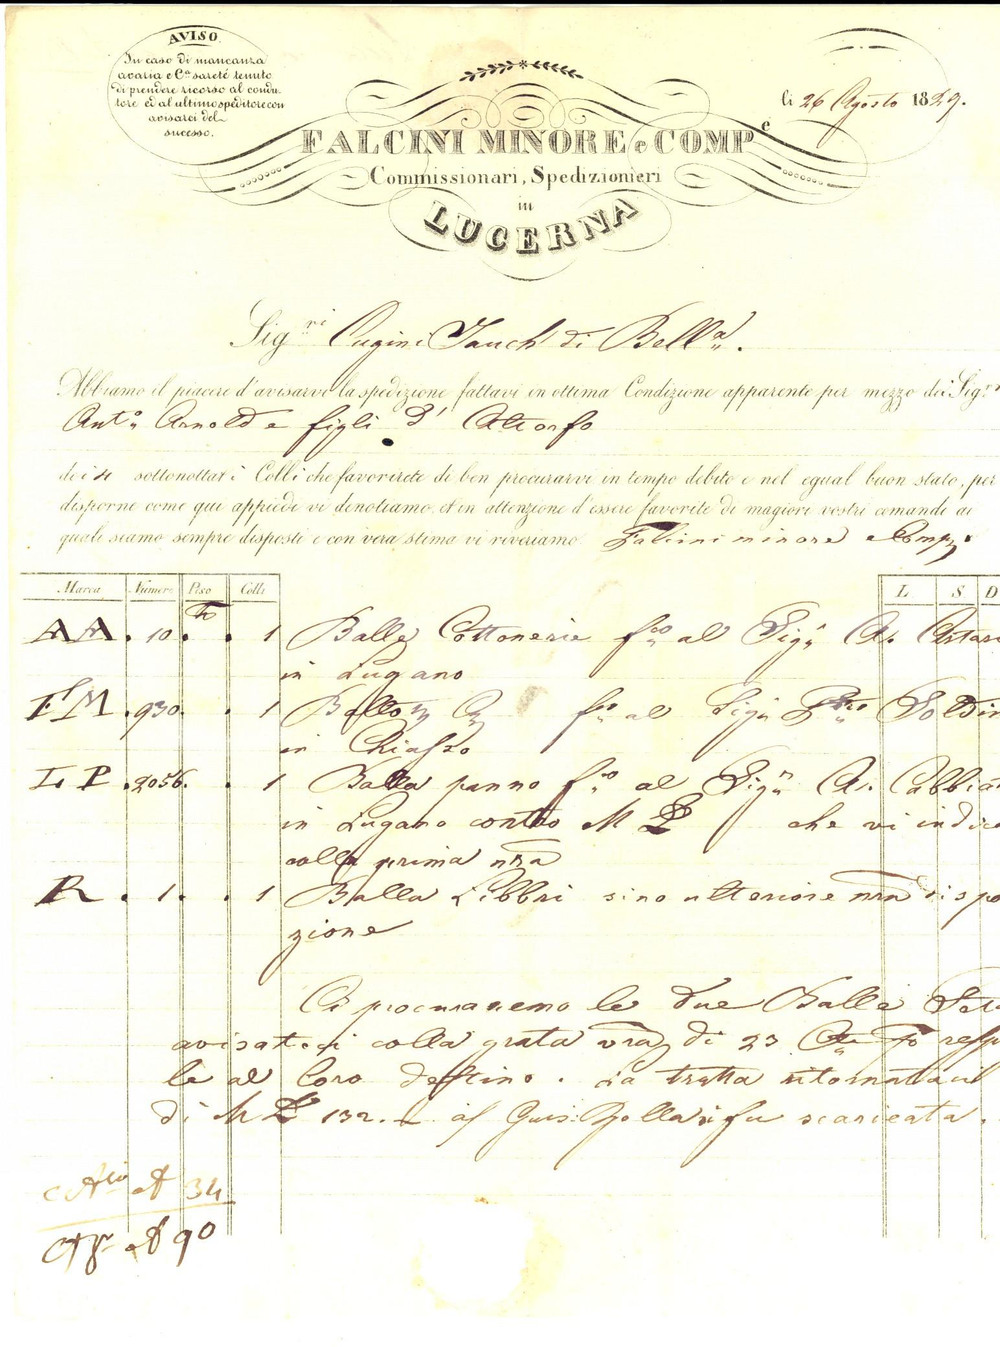 AVISO
In caso di mancanza
avaria e C.ª sarete tenuto
di prendere ricorso al condu-
tore ed al ultimo speditore con
avisarci del
sucesso.
li 26 Agosto 1829.
FALCINI MINORE e COMP.e
Commissionari, Spedizionieri
in
LUCERNA
Sig.ri Cugini Jauch di Bell.a
Abbiamo il piacere d'avisarvi la spedizione fattavi in ottima Condizione apparente per mezzo dei Sig.ri
Ant.o Arnold e figli d' Altorfo
dei 4 sottonottati Colli che favorirete di ben procurarvi in tempo debito e nel egual buon stato, per
disporne come qui appiedi vi denotiamo, ed in attenzione d'essere favorite di magiori vostri comande ai
quali siamo sempre disposti e con vera stima vi riveriamo. Falcini minore e Comp.
Marca Numero Peso Colli L. S. D
AA. 10. 1 Balle Cottonerie f.co al Sig.r A. Artari
in Lugano
FM. 930. 1 f.co al Sig.r Soldin
in Chiasso
LP. 2056. 1 Balla panno f.co al Sig.r A. Cabbia
in Lugano contro che vi indic
colla prima nra
R. 1. 1 Balla Libbri sino ulteriore nra dispo
zione
Ci procureremo le due Balle Seta
avisateci colla grata vra di 23 resp
le al loro destino. La tratta ritornata
di 132. fu scaricata.
34
90